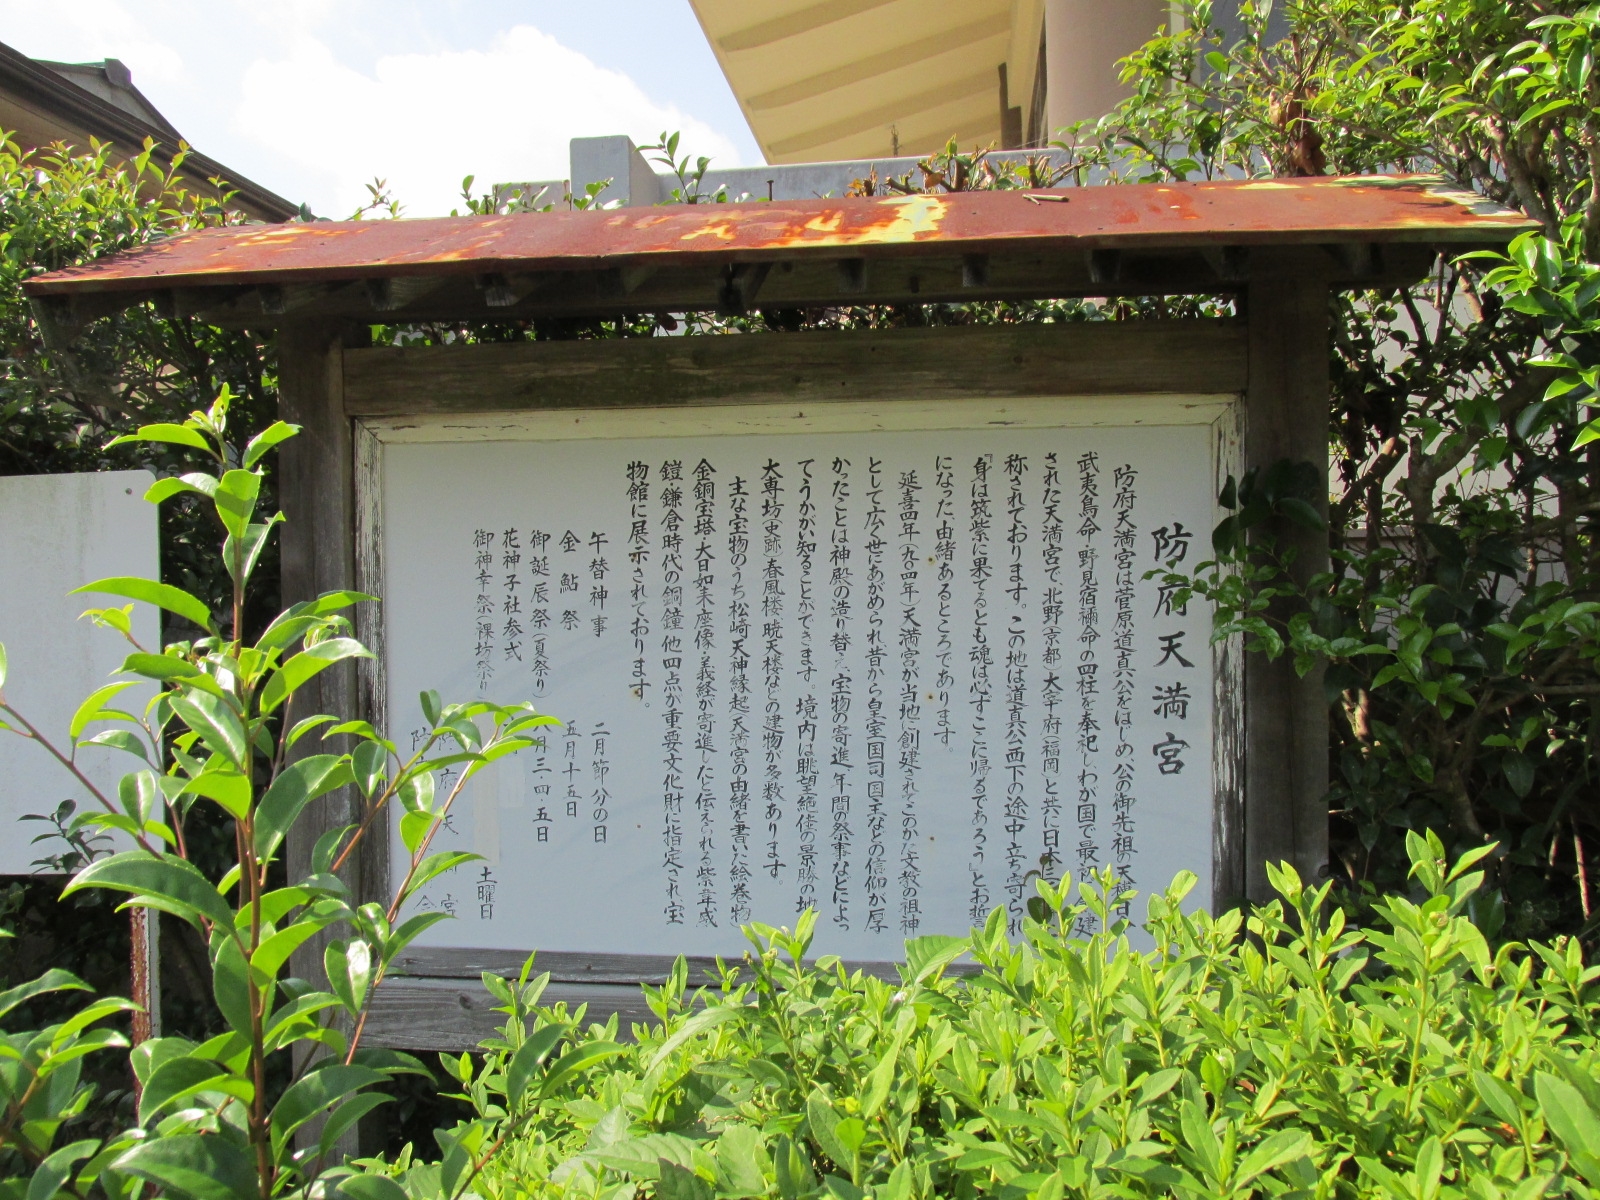 防府天満宮
防府天満宮は菅原道真公をはじめ、公の御先祖の天穂日
武夷鳥命 野見宿禰命の四柱を奉祀しわが国で最
された天満宮で、北野(京都)大宰府(福岡)と共に日本三
称されております。この地は道真公西下の途中立ち寄られ
『身は筑紫に果てるとも魂は必ずここに帰るであろう』とお誓
になった由緒あるところであります。
延喜四年(九〇四年)天満宮が当地に創建されこのかた文教の祖神
として広く世にあがめられ、昔から皇室国司国主などの信仰が厚
かったことは神殿の造り替え、宝物の寄進、年間の祭事などによっ
てうかがい知ることができます。境内は眺望絶佳の景勝の地
大専坊(史跡)春風楼、暁天楼などの建物が多数あります。
主な宝物のうち松崎天神縁起(天満宮の由緒を書いた絵巻物
金銅宝塔・大日如来座像・義経が寄進したと伝えられる紫韋威
鎧・鎌倉時代の銅鐘、他四点が重要文化財に指定され宝
物館に展示されております。
午替神事 二月節分の日
金鮎祭 五月十五日
御誕辰祭(夏祭り) 八月三・四・五日
花神子社参式
御神幸祭(裸坊祭り) 土曜日
府天 宮
防 会